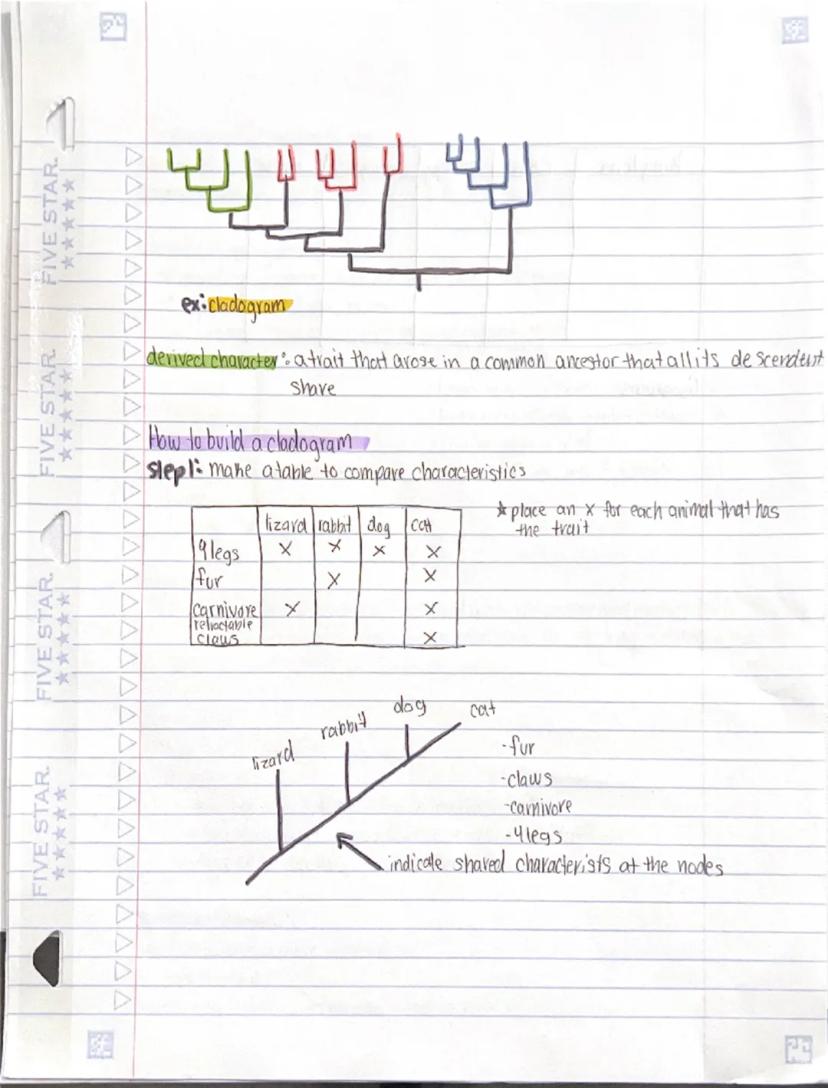 ex: cladogram
derived character: a trait that arose in a common ancestor that all its descendent
share
How to build a cladogram
step 1: make a table to compare characteristics
* place an x for each animal that has
the trait
lizard rabbit dog cat
4 legs x x x x
fur x x
carnivore x x
retractable
claws x
lizard rabbit dog cat
-fur
-claws
-carnivore
-4 legs
indicate shared characterists at the nodes
FIVE STAR.
FIVE STAR.
FIVE STAR.
FIVE STAR.